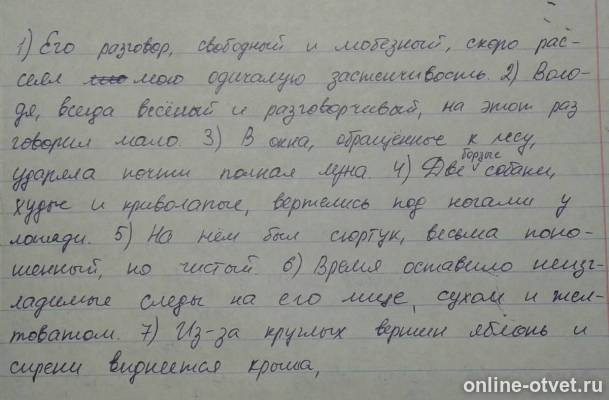 1) Его разговор, свободный и мобезный, скоро рас-
сеял мою одичалую застенчивость. 2) Воло-
дя, всегда весёлый и разговорчивый, на этот раз
говорил мало. 3) В окна, обращённые к лесу,
ударяла почти полная луна. 4) Две борзые собаки,
худые и криволапые, вертелись под ногами у
лошади. 5) На нём был сюртук, весьма поно-
шенный, но чистый. 6) Время оставило неизг-
ладимые следы на его лице, сухом и жел-
товатом. 7) Из-за круглых вершин яблонь и
сирени виднеется крыша,
online-otvet.ru